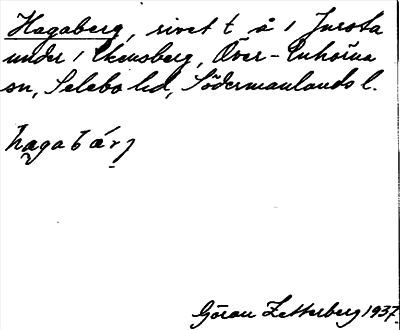 Hagaberg, rivet t å i Jursta
under i Ekensberg, Över-Enhörna
sn, Selebo hd, Södermanlands l.
hagabárj
Göran Zetterberg 1937.